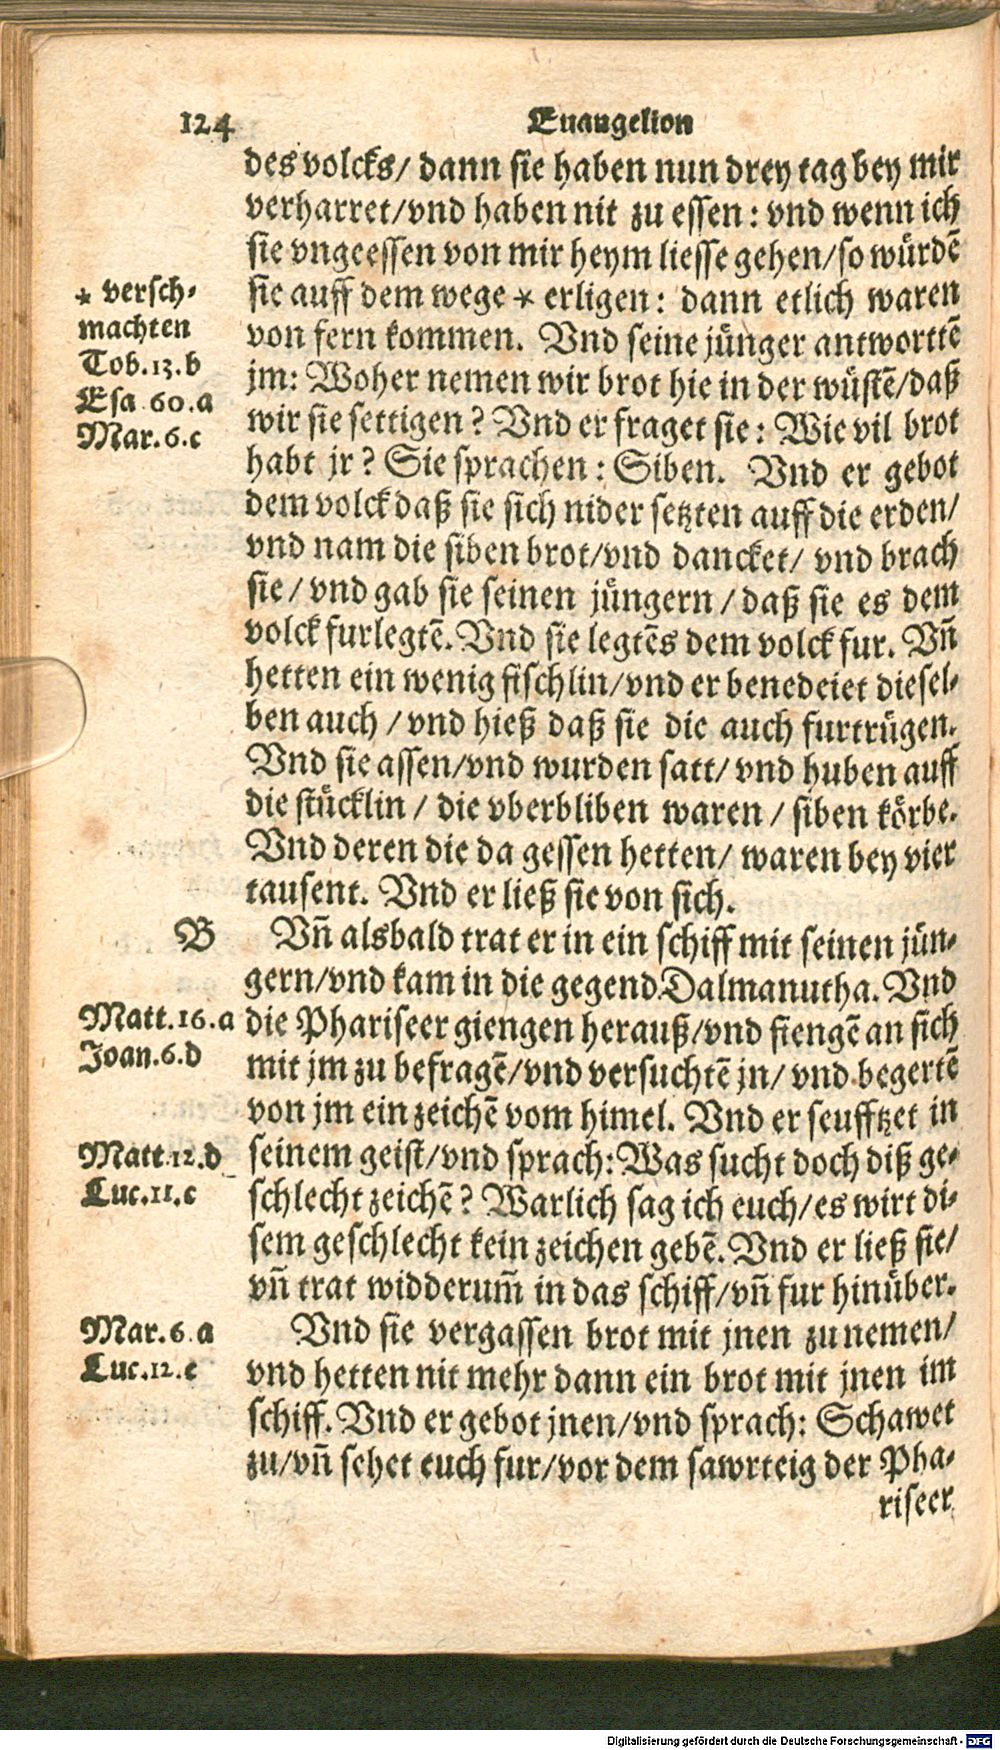 124
Euangelion
des volcks/ dann sie haben nun drey tag bey mir
verharret/vnd haben nit zu essen: vnd wenn ich
sie vngeessen von mir heym liesse gehen/so würdẽ
* versch⸗
machten
Tob.13.b
Esa 60.a
Mar.6.c
sie auff dem wege * erligen: dann etlich waren
von fern kommen. Vnd seine jünger antworttẽ
jm: Woher nemen wir brot hie in der wüstẽ/daß
wir sie settigen? Vnd er fraget sie: Wie vil brot
habt jr? Sie sprachen: Siben. Vnd er gebot
dem volck daß sie sich nider setzten auff die erden/
vnd nam die siben brot/vnd dancket/ vnd brach
sie/ vnd gab sie seinen jüngern/ daß sie es dem
volck furlegtẽ. Vnd sie legtẽs dem volck fur. Vñ
hetten ein wenig fischlin/vnd er benedeiet diesel⸗
ben auch/ vnd hieß daß sie die auch furtrügen.
Vnd sie assen/vnd wurden satt/ vnd huben auff
die stücklin/ die vberbliben waren/ siben körbe.
Vnd deren die da gessen hetten/ waren bey vier
tausent. Vnd er ließ sie von sich.
B
Vñ alsbald trat er in ein schiff mit seinen jün⸗
gern/vnd kam in die gegend Dalmanutha. Vnd
Matt.16.a
Joan.6.d
die Phariseer giengen herauß/vnd fiengẽ an sich
mit jm zu befragẽ/vnd versuchtẽ jn/ vnd begertẽ
von jm ein zeichẽ vom himel. Vnd er seufftzet in
Matt.12.d
Luc.11.c
seinem geist/vnd sprach: Was sucht doch diß ge⸗
schlecht zeichẽ? Warlich sag ich euch/es wirt di⸗
sem geschlecht kein zeichen gebẽ. Vnd er ließ sie/
vñ trat widderum̃ in das schiff/vñ fur hinüber.
Mar.6.a
Luc.12.e
Vnd sie vergassen brot mit jnen zu nemen/
vnd hetten nit mehr dann ein brot mit jnen im
schiff. Vnd er gebot jnen/vnd sprach: Schawet
zu/vñ sehet euch fur/vor dem sawrteig der Pha⸗
riseer
Digitalisierung gefördert durch die Deutsche Forschungsgemeinschaft - DFG